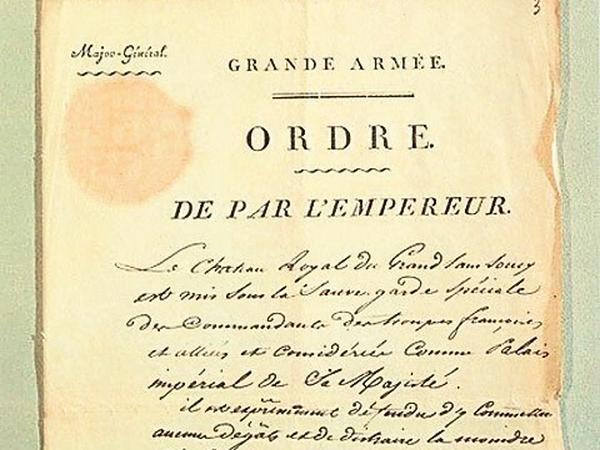 3
Major-Général.
GRANDE ARMÉE.
ORDRE.
DE PAR L'EMPEREUR.
Le Chateau Royal du Grand Sans Soucy
est mis sous la Sauve-garde spéciale
des Commandants des troupes françoises
et alliées et considérée comme Palais
impérial de Sa Majesté.
il est expressément défendu d'y Commettre
aucun dégâts et de distraire la moindre